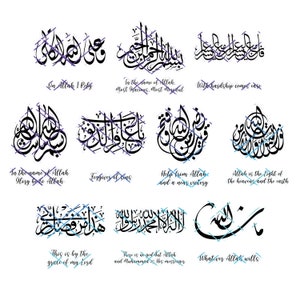 بسم الله الرحمن الرحيم
Allah I
In the name of Allah
Most Gracious, Most Merciful
With hardship comes ease
نصر من الله وفتح قريب
الله نور السموات والأرض
In the name of Allah
Glory be to Allah
Forgiver of sins
Help from Allah
and a near victory
Allah is the Light of
the heavens and the earth
هذا من فضل ربي
لا اله الا الله محمد رسول الله
ما شاء الله
This is by the
grace of my Lord
There is no god but Allah
and Muhammad is His messenger
Whatever Allah wills